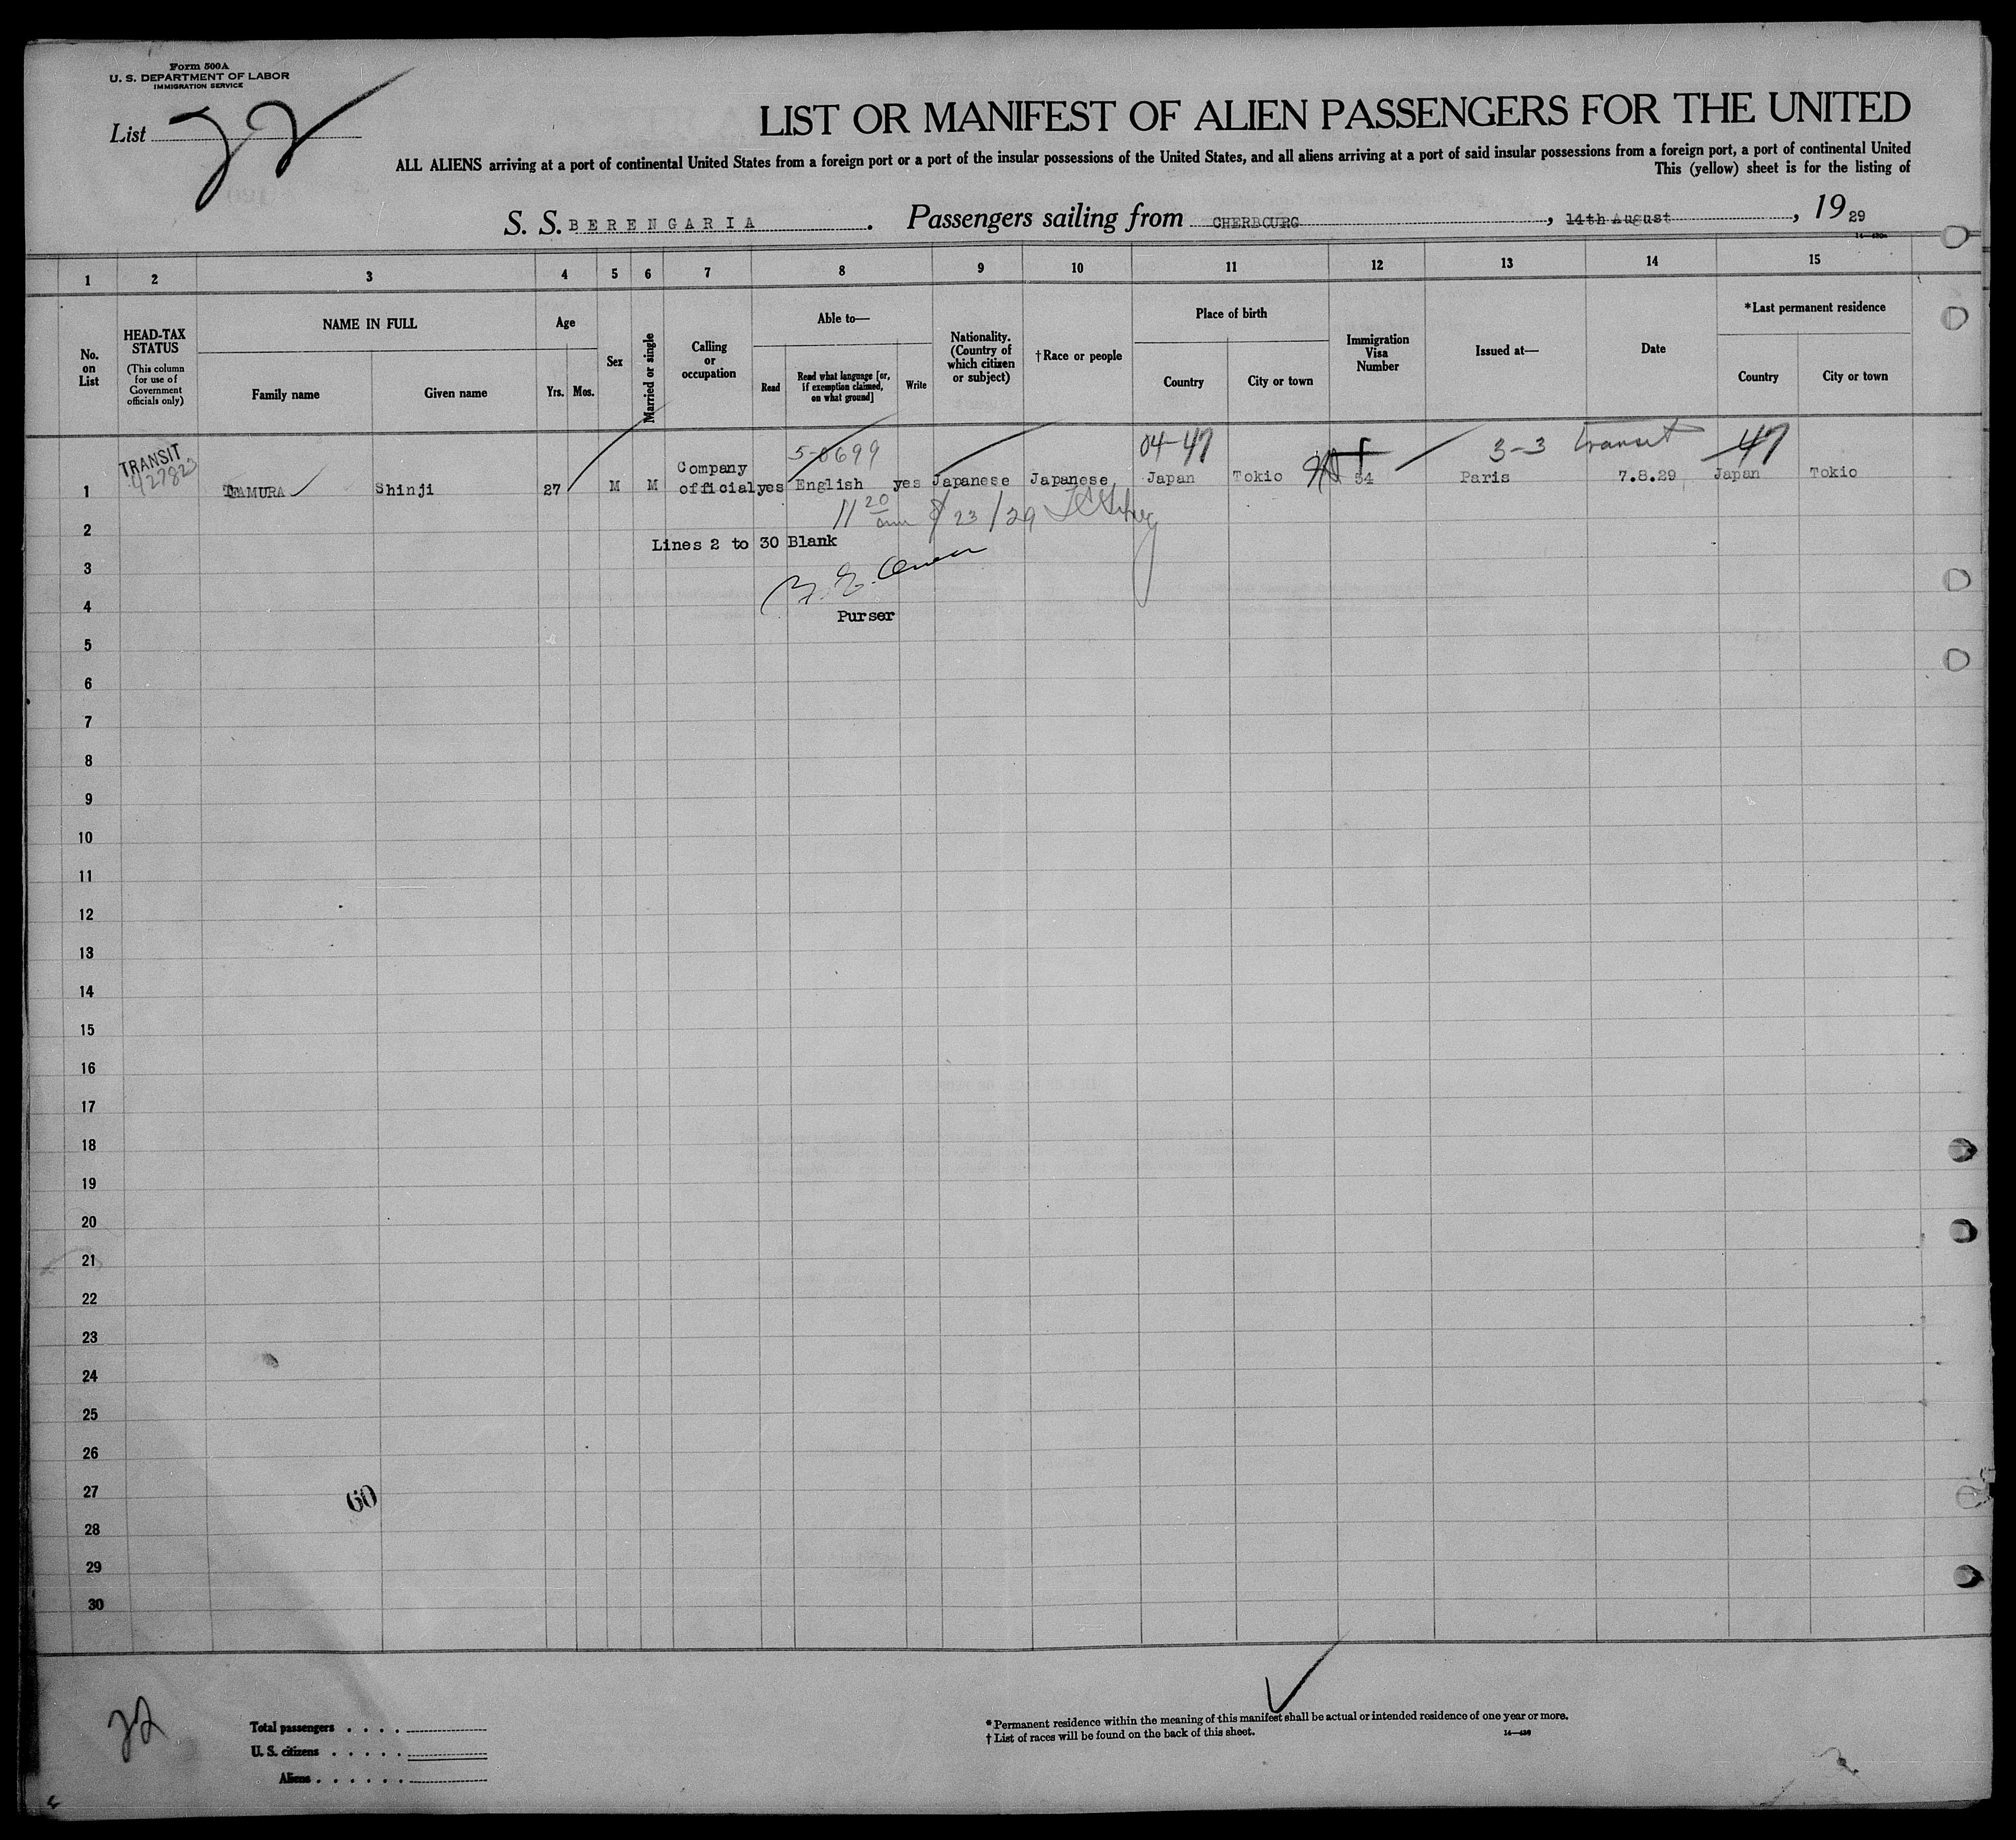 Form 500A
U. S. DEPARTMENT OF LABOR
IMMIGRATION SERVICE
List 72
LIST OR MANIFEST OF ALIEN PASSENGERS FOR THE UNITED
ALL ALIENS arriving at a port of continental United States from a foreign port or a port of the insular possessions of the United States, and all aliens arriving at a port of said insular possessions from a foreign port, a port of continental United
This (yellow) sheet is for the listing of
S. S. BERENGARIA. Passengers sailing from CHERBOURG, 14th August, 1929
1 2 3 4 5 6 7 8 9 10 11 12 13 14 15
No. on List
HEAD-TAX STATUS
(This column for use of Government officials only)
NAME IN FULL
Family name
Given name
Age
Yrs.
Mos.
Sex
Married or single
Calling or occupation
Able to—
Read
Read what language [or, if exemption claimed, on what ground]
Write
Nationality. (Country of which citizen or subject)
†Race or people
Place of birth
Country
City or town
Immigration Visa Number
Issued at—
Date
*Last permanent residence
Country
City or town
TRANSIT 5-0699 04-47 3-3 transit 47
1 TAMURA Shinji 27 M M Company official yes English yes Japanese Japanese Japan Tokio 34 Paris 7.8.29 Japan Tokio
11 20 am 8/23/29
2
Lines 2 to 30 Blank
3
4
Purser
5
6
7
8
9
10
11
12
13
14
15
16
17
18
19
20
21
22
23
24
25
26
27
60
28
29
30
72
Total passengers
U. S. citizens
Aliens
*Permanent residence within the meaning of this manifest shall be actual or intended residence of one year or more.
†List of races will be found on the back of this sheet.